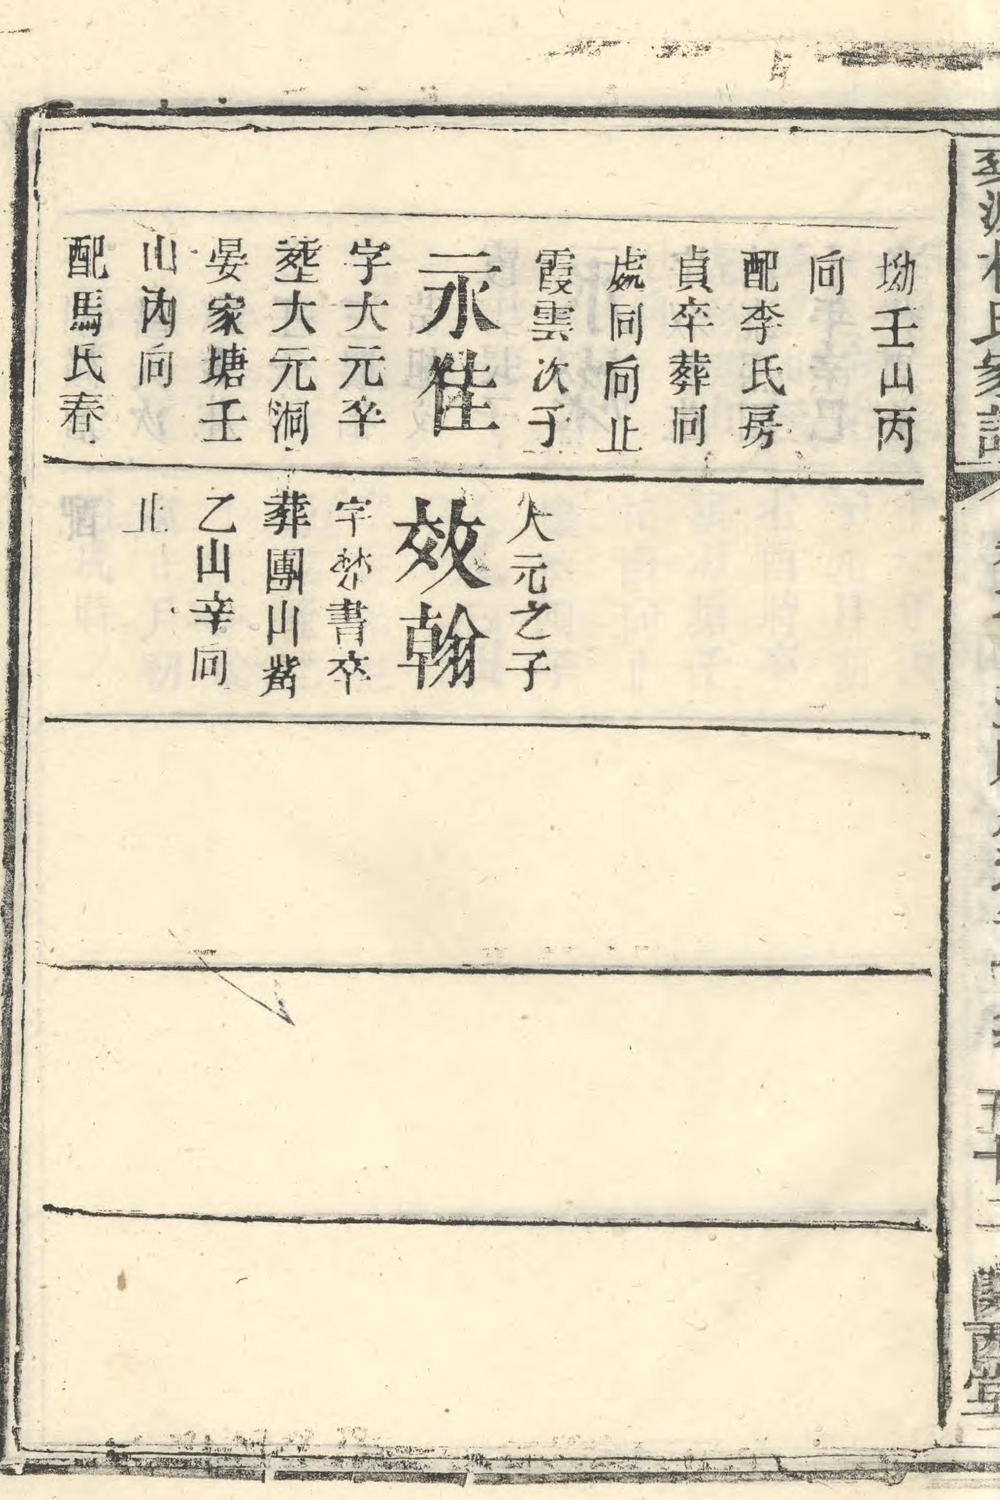 坳壬山丙
向
配李氏房
貞卒葬同
處同向止
霞雲次子
永佳
字大元卒
塟大元洞
晏家塘壬
山丙向
配馬氏春
大元之子
效翰
字楚書卒
葬團山嘴
乙山辛向
止
五十二
關西堂